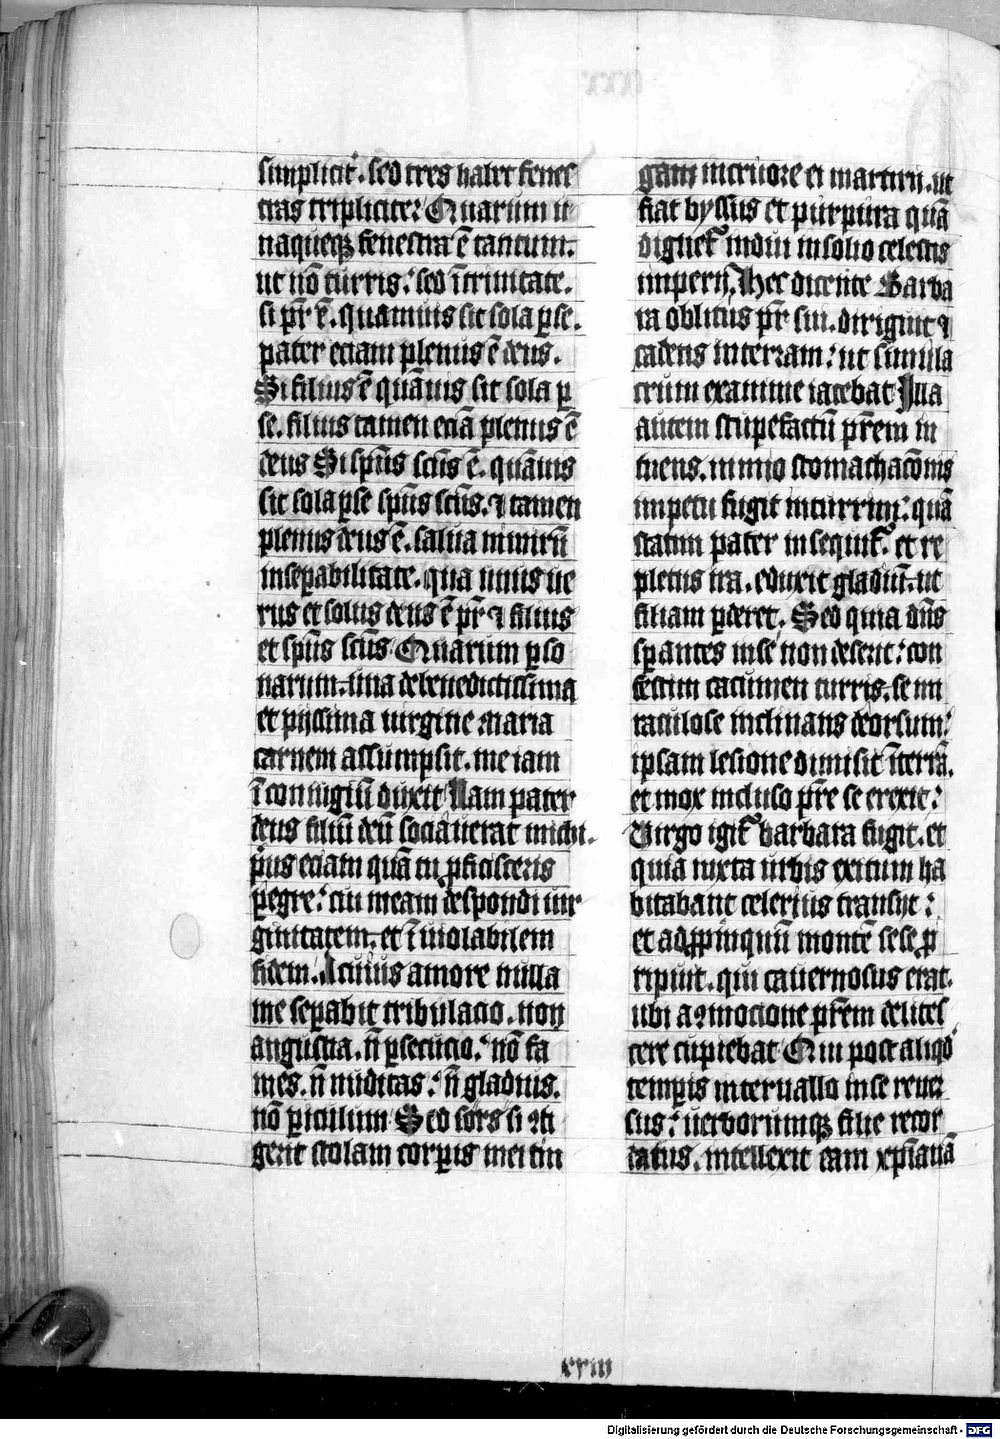 simplicit᷑. sed tres habet fenes
tras triplicit᷑: Quarum u
naqueqꝫ fenestra ē tantum.
ut nō turris: sed ī trinitate.
si pr̄ ē. quamuis sit sola ꝑse.
pater eciam plenus ē deus.
Si filius ē quāuis sit sola ꝑ
se. filius tamen eciā plenus ē
deus Si spūs scūs ē. quāuis
sit sola ꝑse spūs scūs. ⁊ tamen
plenus deus ē. salua nimirū
inseꝑabilitate. qua unus ue
rus et solus deus ē pr̄ ⁊ filius
et spūs scūs Quarum ꝑso
narum. una de benedictissima
et pijssima uirgine maria
carnem assumpsit. me iam
ī coniugiū duxit Nam pater
deus filiū deū sociauerat michi.
prius eciam quā tu ꝓficisceris
ꝑegre: cui meam despondi uir
ginitatem. et ī uiolabilem
fidem. A cuius amore nulla
me seꝑabit tribulacio. non
angustia. n̄ ꝑsecucio. nō fa
mes. n̄ nuditas: n̄ gladius.
nō ꝑiculum Sed sors si ꝯti
gerit stolam corꝑis mei tin
gam in cruore ei martirij. ut
fiat byssus et purpura quā
dignet᷑ indui in solio celestis
imperij. Hec dicente Barba
ra oblitus pr̄ sui. diriguit ⁊
cadens in terram: ut simula
crum exanime iacebat Illa
autem stupefactū pr̄em in
tuens. nimio stomachacōnis
impetu fugit in turrim: quā
statim pater insequit᷑. et re
pletus ira. eduxit gladiū. ut
filiam ꝑderet. Sed quia dn̄s
sꝑantes in se non deserit: con
festim cacumen turris. se mi
raculose inclinans deorsum:
ipsam lesione dimisit ī terrā.
et mox incluso pr̄e se erexit:
Virgo igit᷑ barbara fugit. et
quia iuxta urbis exitum ha
bitabant celerius transijt:
et ad ꝓpinquū montē sese ꝓ
ripuit. qui cauernosus erat.
ubi a ꝯmocione pr̄em delites
cere cupiebat Qui post aliqd̄
temꝑis interuallo in se reuer
sus: uerborumqꝫ filie recor
datus. intellexit eam xp̄ianā
cxiii
Digitalisierung gefördert durch die Deutsche Forschungsgemeinschaft - DFG